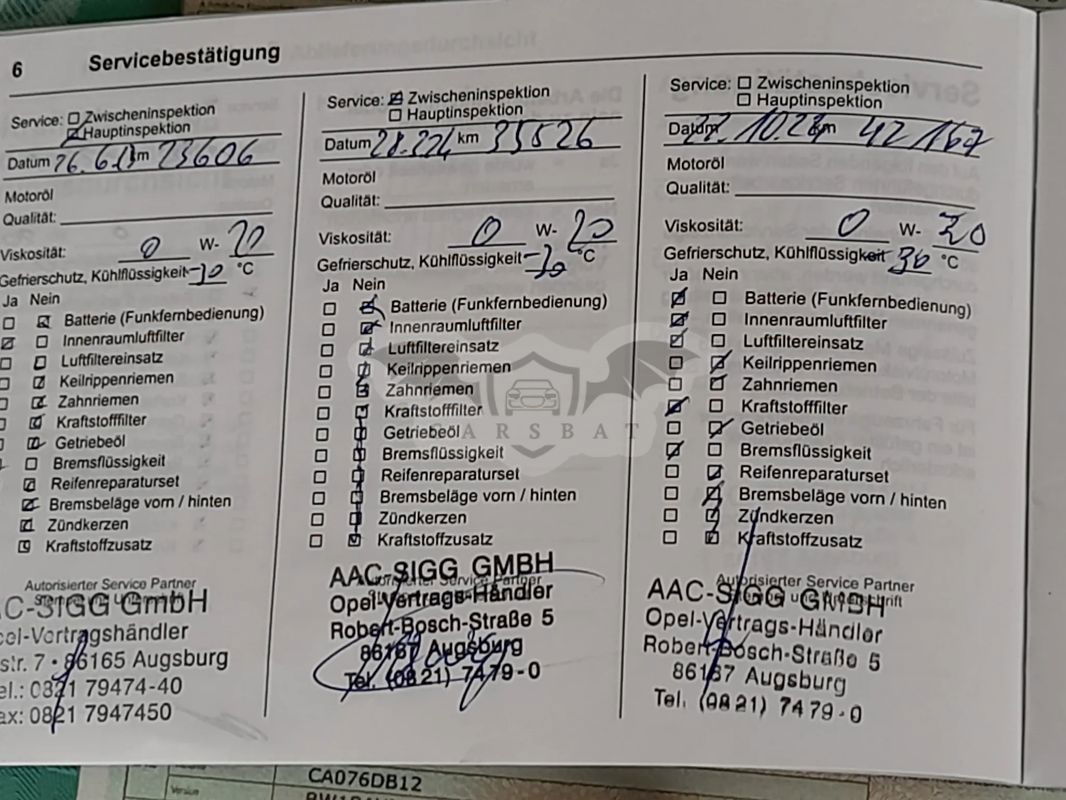 6 Servicebestätigung
Service: Zwischeninspektion
Hauptinspektion
Datum 26.6. km 23606
Motoröl
Qualität:
Viskosität: 0 W- 20
Gefrierschutz, Kühlflüssigkeit -30 °C
Ja Nein
Batterie (Funkfernbedienung)
Innenraumluftfilter
Luftfiltereinsatz
Keilrippenriemen
Zahnriemen
Kraftstofffilter
Getriebeöl
Bremsflüssigkeit
Reifenreparaturset
Bremsbeläge vorn / hinten
Zündkerzen
Kraftstoffzusatz
Autorisierter Service Partner
C-SIGG GmbH
pel-Vertragshändler
str. 7 • 86165 Augsburg
el.: 0821 79474-40
ax: 0821 7947450
Service: Zwischeninspektion
Hauptinspektion
Datum km 35526
Motoröl
Qualität:
Viskosität: 0 W- 20
Gefrierschutz, Kühlflüssigkeit -30 °C
Ja Nein
Batterie (Funkfernbedienung)
Innenraumluftfilter
Luftfiltereinsatz
Keilrippenriemen
Zahnriemen
Kraftstofffilter
Getriebeöl
Bremsflüssigkeit
Reifenreparaturset
Bremsbeläge vorn / hinten
Zündkerzen
Kraftstoffzusatz
Autorisierter Service Partner
AAC-SIGG GMBH
Opel-Vertrags-Händler
Robert-Bosch-Straße 5
86167 Augsburg
Tel. (0821) 7479-0
Service: Zwischeninspektion
Hauptinspektion
Datum km 42167
Motoröl
Qualität:
Viskosität: 0 W- 20
Gefrierschutz, Kühlflüssigkeit 30 °C
Ja Nein
Batterie (Funkfernbedienung)
Innenraumluftfilter
Luftfiltereinsatz
Keilrippenriemen
Zahnriemen
Kraftstofffilter
Getriebeöl
Bremsflüssigkeit
Reifenreparaturset
Bremsbeläge vorn / hinten
Zündkerzen
Kraftstoffzusatz
Autorisierter Service Partner
AAC-SIGG GMBH
Opel-Vertrags-Händler
Robert-Bosch-Straße 5
86167 Augsburg
Tel. (0821) 7479-0
CARSBAT
Version
CA076DB12